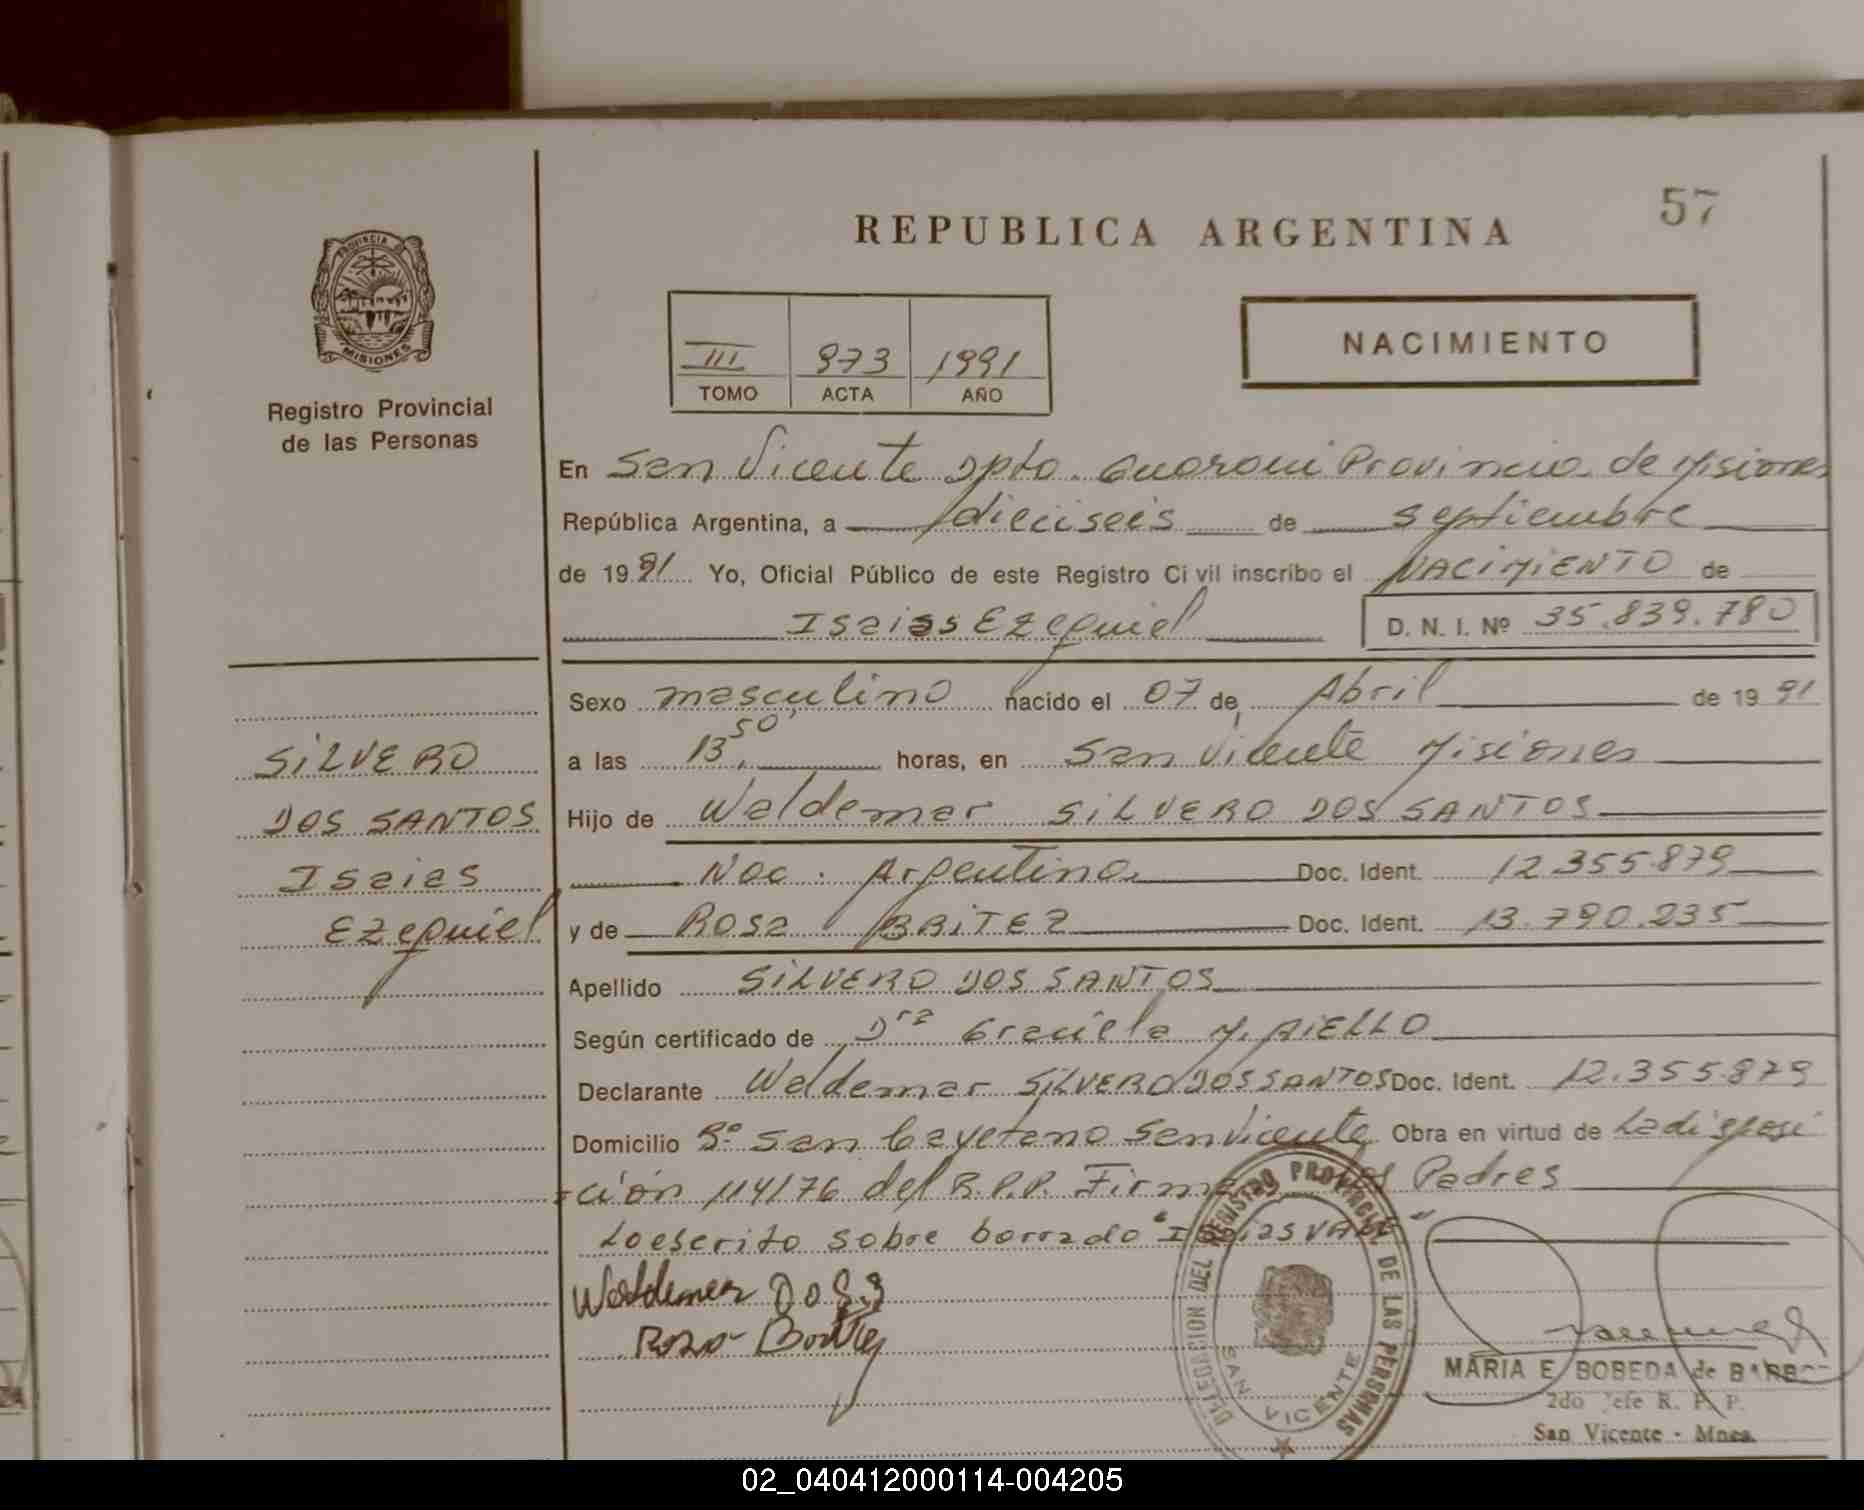 57
REPUBLICA ARGENTINA
PROVINCIA DE
MISIONES
Registro Provincial
de las Personas
III 973 1991
TOMO ACTA AÑO
NACIMIENTO
En San Vicente Dpto. Guarani Provincia de Misiones
República Argentina, a dieciseis de septiembre
de 1991 Yo, Oficial Público de este Registro Civil inscribo el NACIMIENTO de
Isaias Ezequiel D. N. I. Nº 35.839.780
Sexo masculino nacido el 07 de Abril de 1991
a las 13,50' horas, en San Vicente Misiones
Hijo de Waldemar SILVERO DOS SANTOS
Nac. Argentina Doc. Ident. 12.355.879
y de Rosa BRITEZ Doc. Ident. 13.790.235
Apellido SILVERO DOS SANTOS
Según certificado de Dra Graciela M. AIELLO
Declarante Waldemar SILVERO DOS SANTOS Doc. Ident. 12.355.879
Domicilio Bº San Cayetano San Vicente Obra en virtud de La disposi
=ción 114/76 del R.P.P. Firman los Padres
Lo escrito sobre borrado "Isaias VALE"
SILVERO
DOS SANTOS
Isaias
Ezequiel
Waldemar D o S S
Rosa
DELEGACION DEL REGISTRO PROVINCIAL DE LAS PERSONAS
SAN VICENTE
MARIA E. BOBEDA de
2do Jefe R. P. P.
San Vicente - Mnes.
02_040412000114-004205